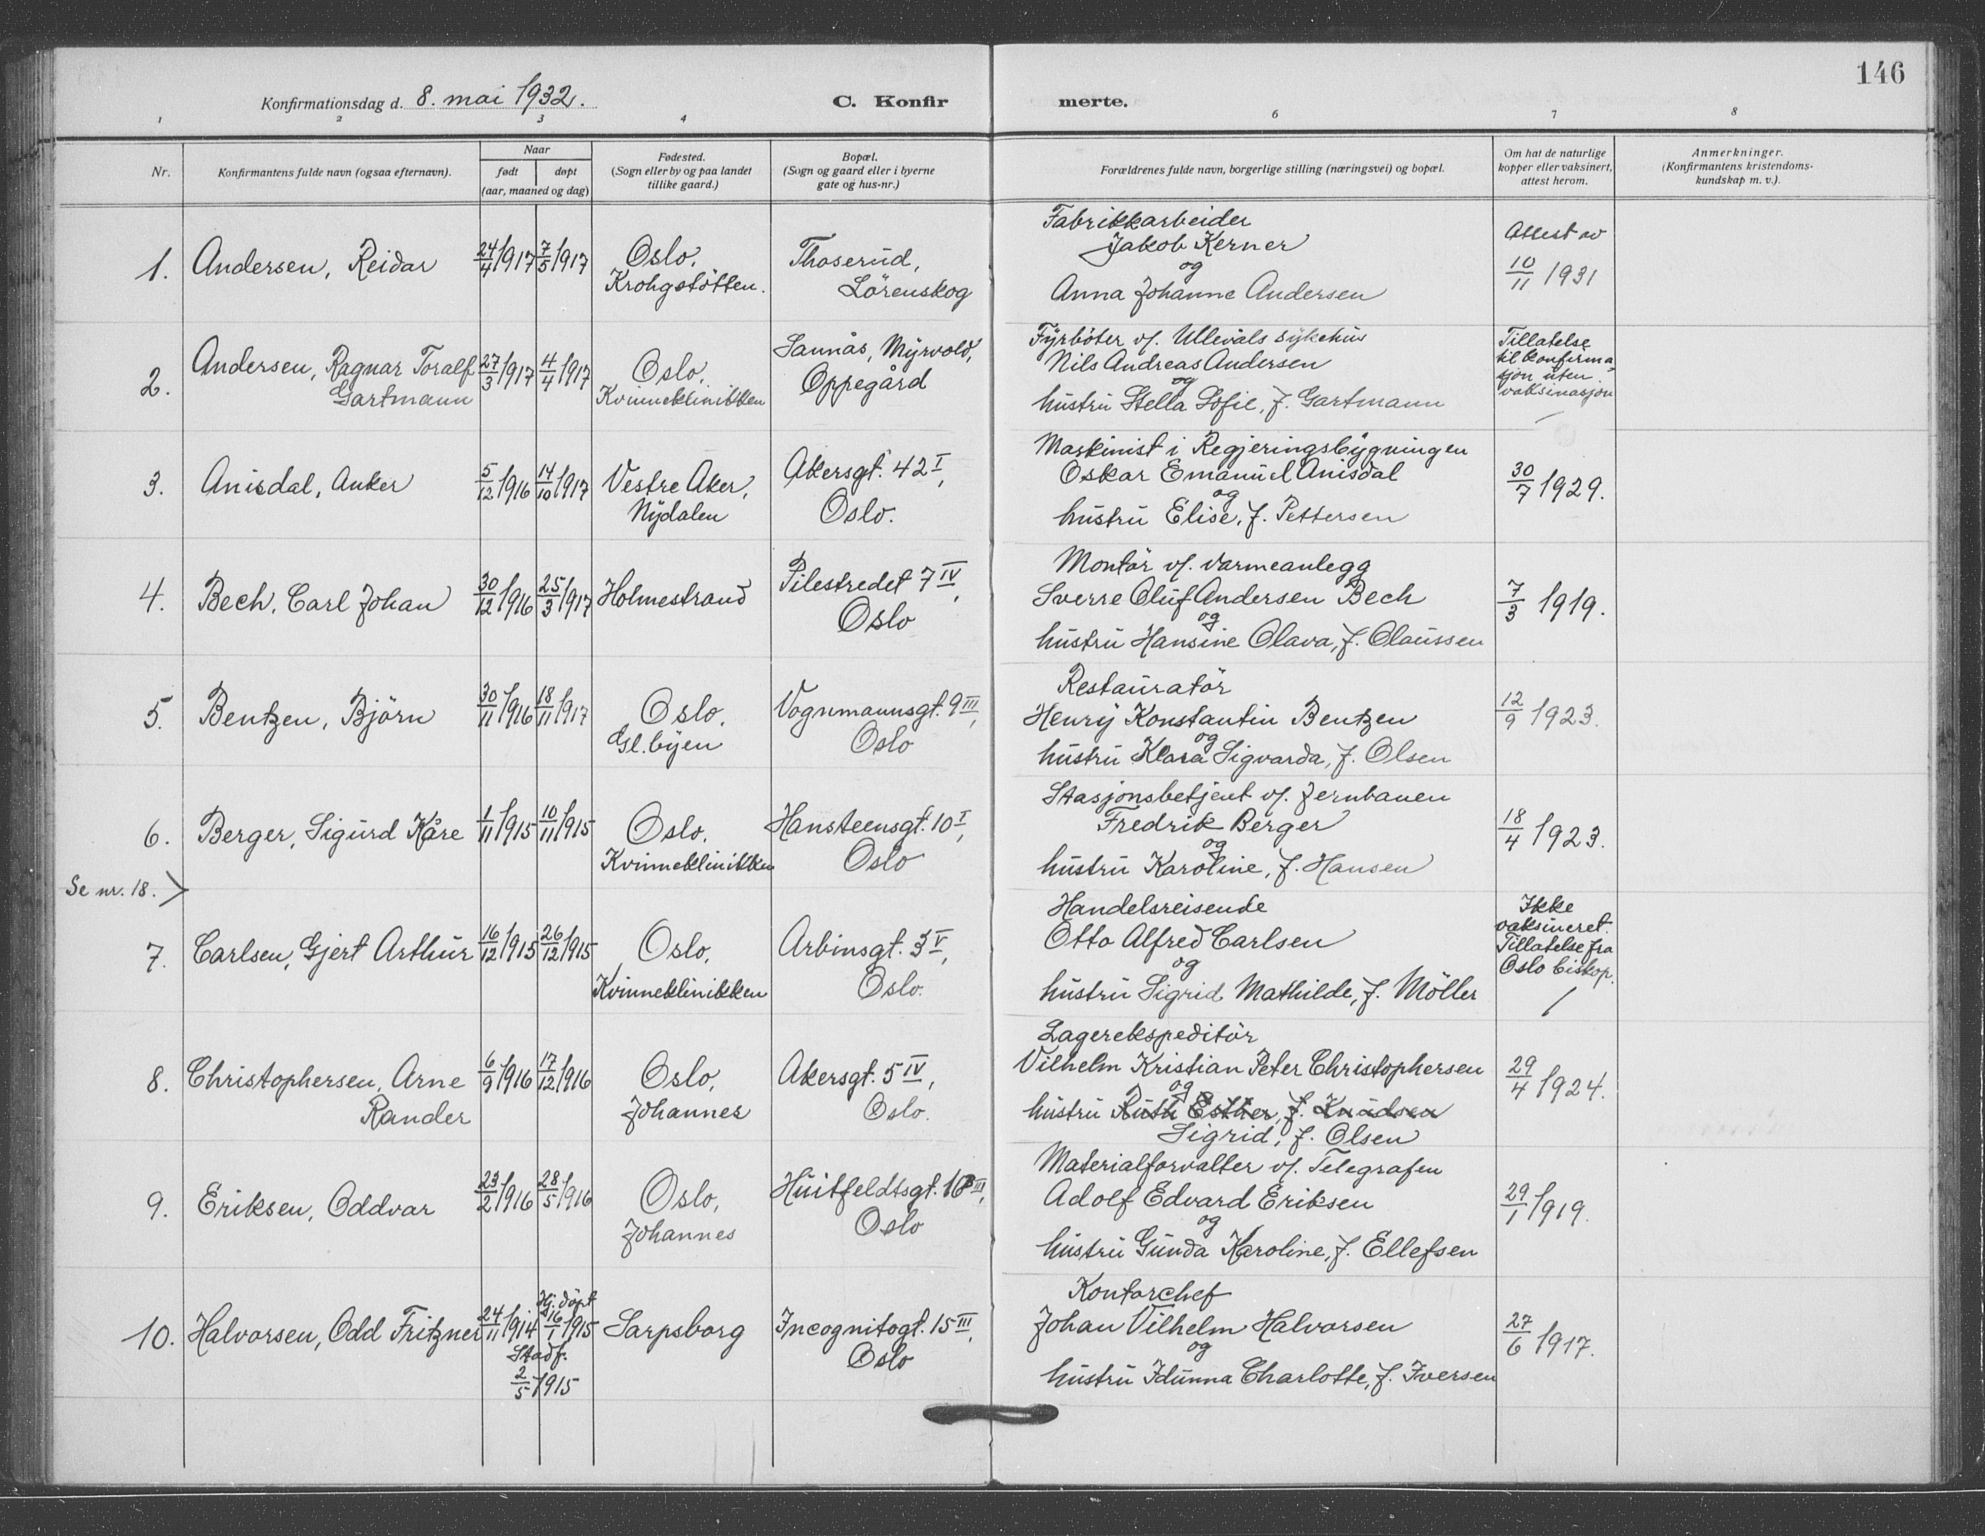 146
Konfirmationsdag d. 8. mai 1932.
C. Konfir
merte.
1 2 3 4 6 7 8
Nr.
Konfirmantens fulde navn (ogsaa efternavn).
Naar
født
døpt
(aar, maaned og dag)
Fødested.
(Sogn eller by og paa landet
tillike gaard.)
Bopæl.
(Sogn og gaard eller i byerne
gate og hus-nr.)
Forældrenes fulde navn, borgerlige stilling (næringsvei) og bopæl.
Om hat de naturlige
kopper eller vaksinert,
attest herom.
Anmerkninger.
(Konfirmantens kristendoms-
kundskap m. v.).
1.
Andersen, Reidar
24/4 1917
7/5 1917
Oslo,
Krohgstøtten.
Thoserud,
Lörenskog
Fabrikkarbeider
Jakob Kerner
og
Anna Johanne Andersen
Attest av
10/11 1931
2.
Andersen, Ragnar Toralf
Gartmann
27/3 1917
4/4 1917
Oslo,
Kvinneklinikken
Sannås, Myrvold,
Oppegård
Fyrböter v/. Ullevåls sykehus
Nils Andreas Andersen
og
hustru Stella Sofie, f. Gartmann
Tillatelse
til konfirma-
sjon uten
vaksinasjon
3.
Anisdal, Anker
5/12 1916
14/10 1917
Vestre Aker,
Nydalen
Akersgt. 42 I,
Oslo.
Maskinist i Regjeringsbygningen
Oskar Emanuel Anisdal
og
hustru Elise, f. Pettersen
30/7 1929.
4.
Bech, Carl Johan
30/12 1916
25/3 1917
Holmestrand
Pilestredet 7 IV,
Oslo
Montör v/. varmeanlegg
Sverre Oluf Andersen Bech
og
hustru Hansine Olava, f. Claussen
7/3 1919.
5.
Bentzen, Björn
30/11 1916
18/11 1917
Oslo,
Gl. byen
Vognmannsgt. 9 III,
Oslo
Restauratör
Henry Konstantin Bentzen
og
hustru Klara Sigvarda, f. Olsen
12/9 1923.
6.
Berger, Sigurd Kåre
1/11 1915
10/11 1915
Oslo,
Kvinneklinikken
Hansteensgt. 10 I,
Oslo
Stasjonsbetjent v/. jernbanen
Fredrik Berger
og
hustru Karoline, f. Hansen
18/4 1923.
Se nr. 18. >
7.
Carlsen, Gjert Arthur
16/12 1915
26/12 1915
Oslo,
Kvinneklinikken
Arbinsgt. 3 V,
Oslo.
Handelsreisende
Otto Alfred Carlsen
og
hustru Sigrid Mathilde, f. Möller
Ikke
vaksineret.
Tillatelse fra
Oslo biskop.
8.
Christophersen, Arne
Rander
6/9 1916
17/12 1916
Oslo,
Johannes
Akersgt. 5 IV,
Oslo.
Lagerekspeditör
Vilhelm Kristian Peter Christophersen
og
hustru Ruth Esther, f. Knudsen
Sigrid, f. Olsen
29/4 1924.
9.
Eriksen, Oddvar
23/2 1916
28/5 1916
Oslo,
Johannes
Huitfeldtsgt. III,
Oslo
Materialforvalter v/. Telegrafen
Adolf Edvard Eriksen
og
hustru Gunda Karoline, f. Ellefsen
29/1 1919.
10.
Halvorsen, Odd Fritzner
24/11 1914
Hj. döpt
16/1 1915
Stadf.
2/5 1915
Sarpsborg
Incognitogt. 15 III,
Oslo
Kontorchef
Johan Vilhelm Halvorsen
og
hustru Idunna Charlotte, f. Iversen
27/6 1917.